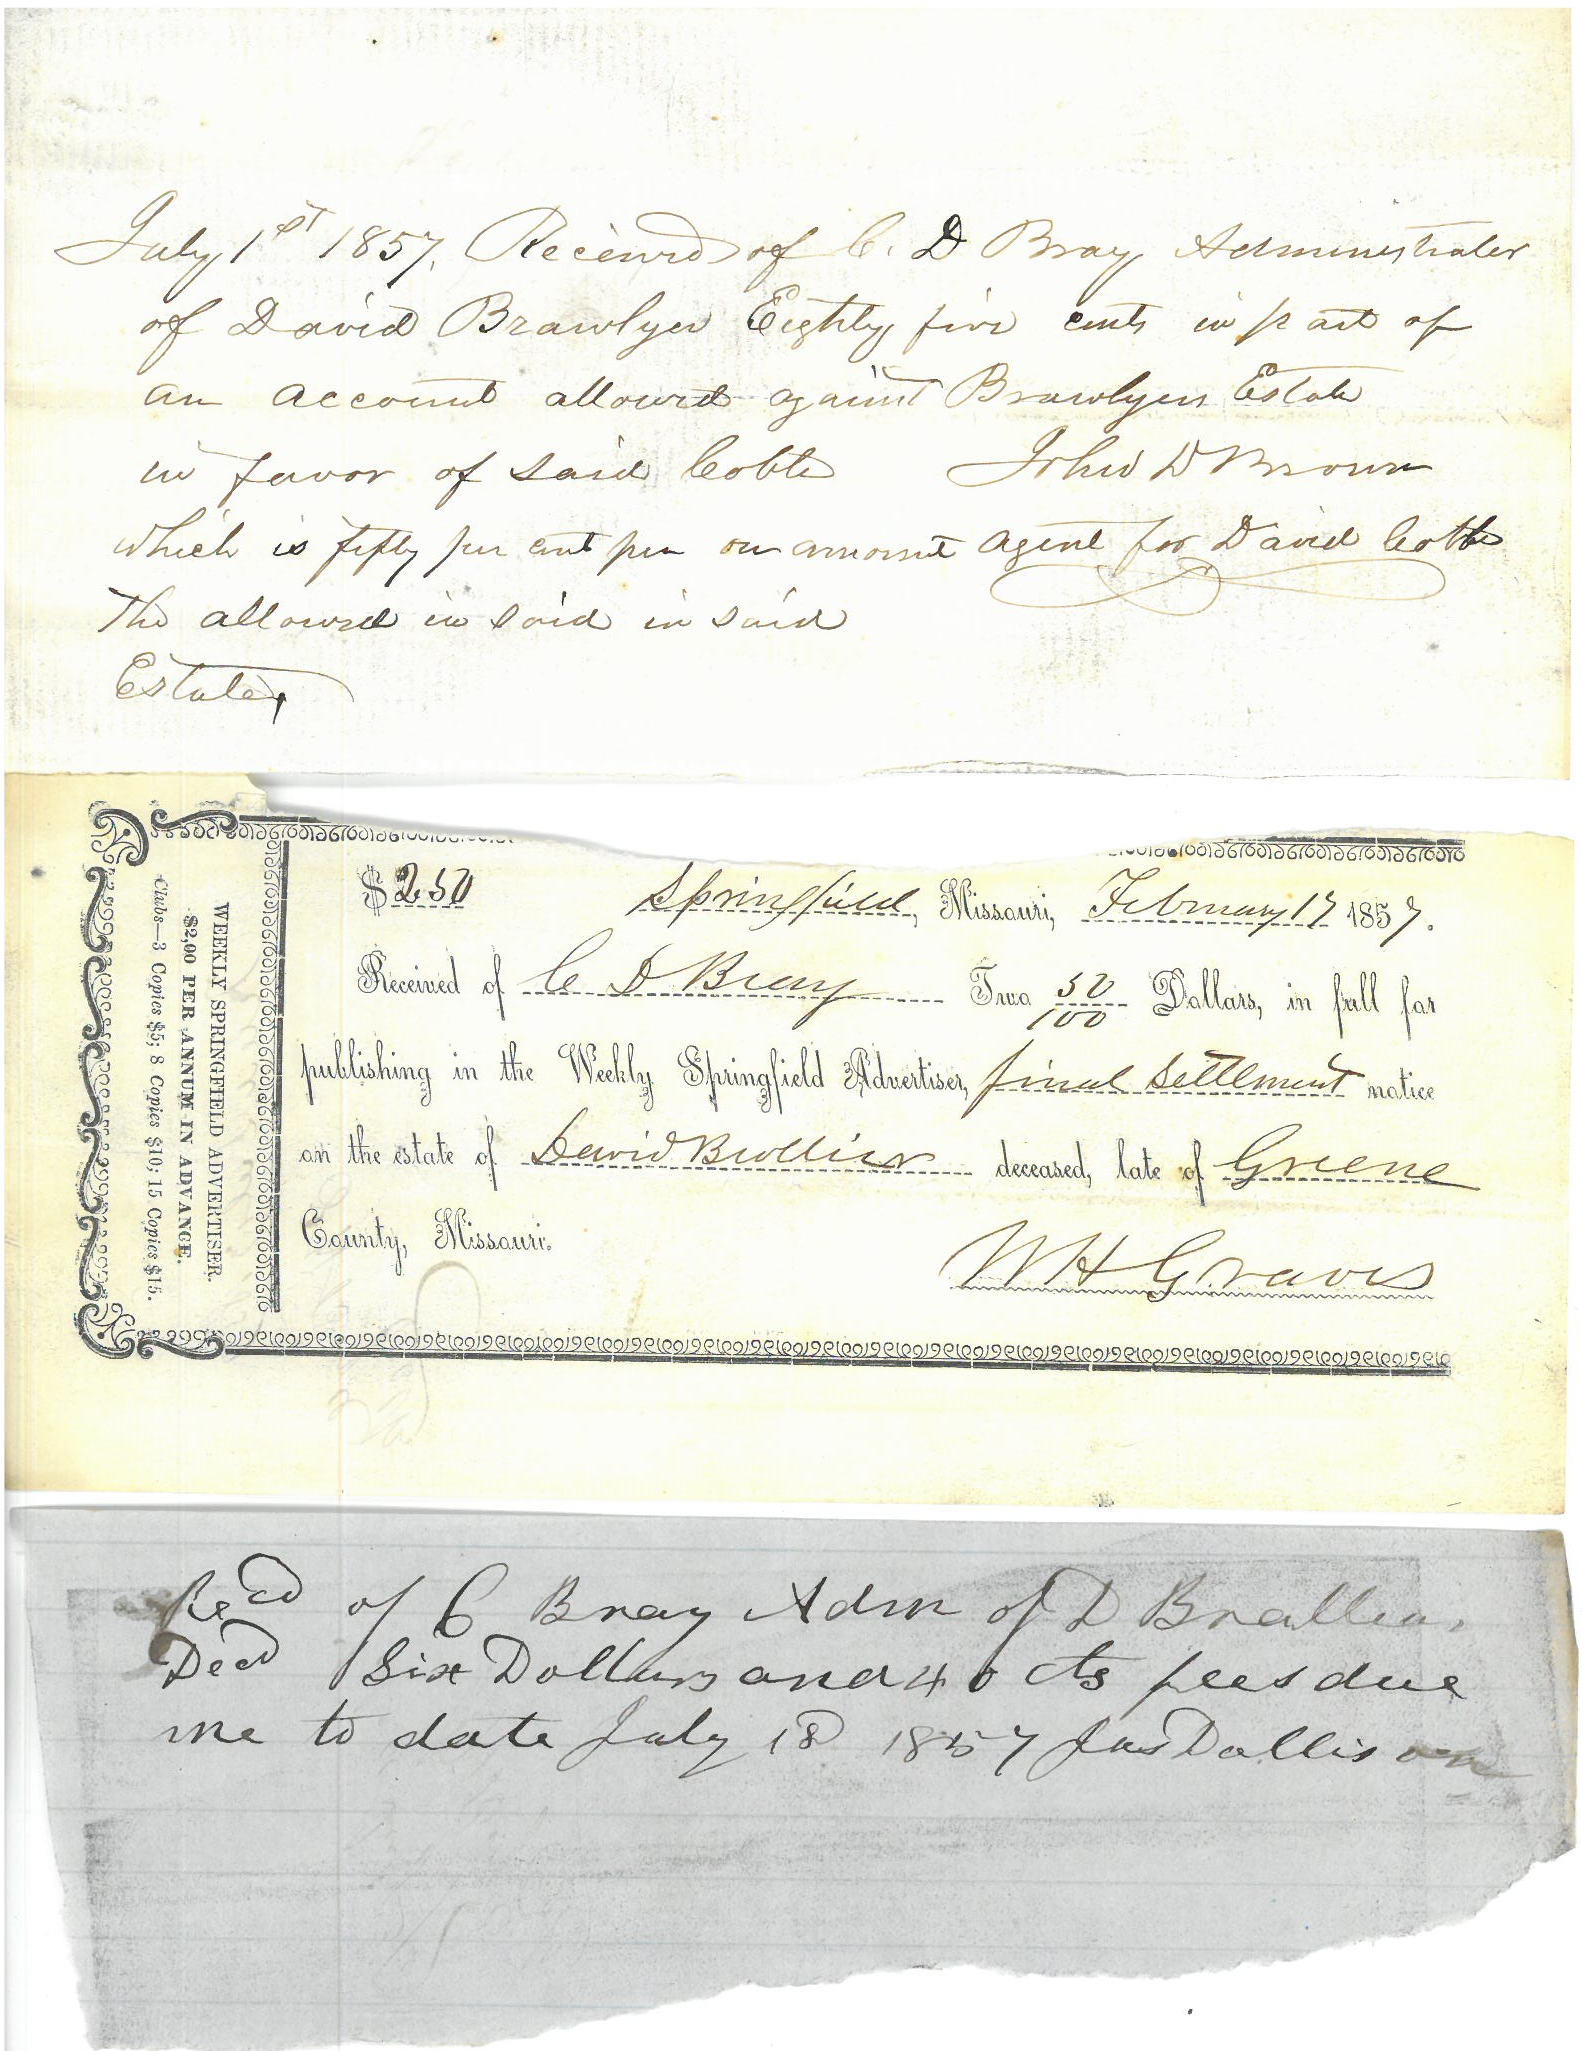 July 1st 1857, Received of C. D Bray Administrater
of David Brawlyer Eighty five cents in part of
an account allowed against Brawlyers Estate
in favor of said Cobb John D Brown
which is fifty per cent per on amount agent for David Cobb
The allowed in said in said
Estate,
$2.50 Springfield, Missouri, February 17 1857.
Received of C D Bray Two 50/100 Dollars, in full for
publishing in the Weekly Springfield Advertiser, final settlement notice
on the estate of David Brollier deceased, late of Greene
County, Missouri.
W H Graves
WEEKLY SPRINGFIELD ADVERTISER.
$2,00 PER ANNUM IN ADVANCE.
Clubs—3 Copies $5; 8 Copies $10; 15 Copies $15.
Recd of C Bray Adm of D Brallier
Decd Six Dollars and 40 cts fees due
me to date July 18 1857 Jas Dollison